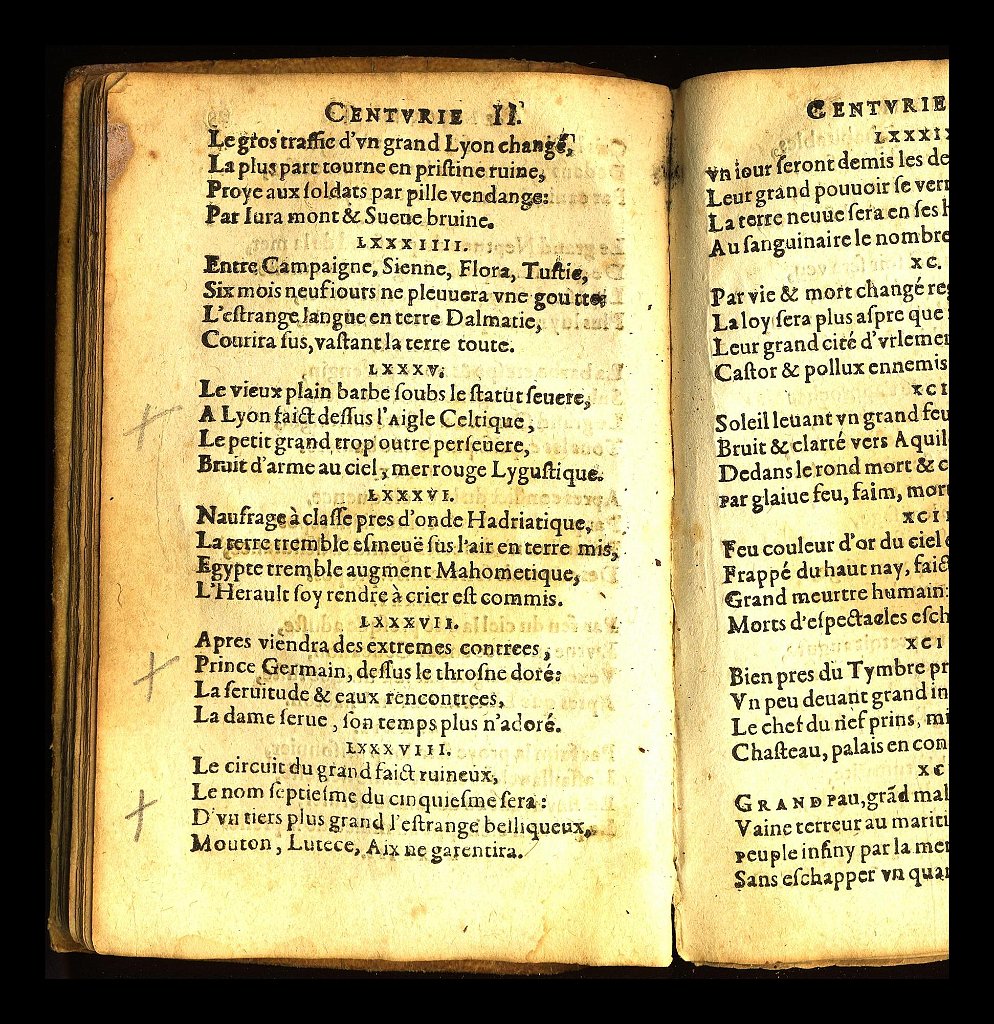 CENTVRIE II.
Le gros traffic d'vn grand Lyon changé,
La plus part tourne en pristine ruine,
Proye aux soldats par pille vendange:
Par Iura mont & Sueue bruine.
LXXXIIII.
Entre Campaigne, Sienne, Flora, Tustie,
Six mois neuf iours ne pleuuera vne goutte;
L'estrange langue en terre Dalmatie,
Courira sus, vastant la terre toute.
LXXXV.
Le vieux plain barbe soubs le statut seuere,
A Lyon faict dessus l'Aigle Celtique,
Le petit grand trop outre perseuere,
Bruit d'arme au ciel, mer rouge Lygustique.
LXXXVI.
Naufrage à classe pres d'onde Hadriatique,
La terre tremble esmeuë sus l'air en terre mis,
Egypte tremble augment Mahometique,
L'Herault soy rendre à crier est commis.
LXXXVII.
Apres viendra des extremes contrees,
Prince Germain, dessus le throsne doré:
La seruitude & eaux rencontrees,
La dame serue, son temps plus n'adoré.
LXXXVIII.
Le circuit du grand faict ruineux,
Le nom septiesme du cinquiesme sera:
D'vn tiers plus grand l'estrange belliqueux,
Mouton, Lutece, Aix ne garentira.
CENTVRIE
LXXXIX
Vn iour seront demis les de
Leur grand pouuoir se verr
La terre neuue sera en ses h
Au sanguinaire le nombre
XC.
Par vie & mort changé reg
La loy sera plus aspre que
Leur grand cité d'vrlemen
Castor & pollux ennemis
XCI
Soleil leuant vn grand feu
Bruit & clarté vers Aquil
Dedans le rond mort & c
par glaiue feu, faim, mort
XCII
Feu couleur d'or du ciel e
Frappé du haut nay, faict
Grand meurtre humain:
Morts d'espectacles esch
XCI
Bien pres du Tymbre pr
Vn peu deuant grand in
Le chef du nef prins, mi
Chasteau, palais en con
XC
GRAND pau, grãd mal
Vaine terreur au mariti
peuple infiny par la mer
Sans eschapper vn quar